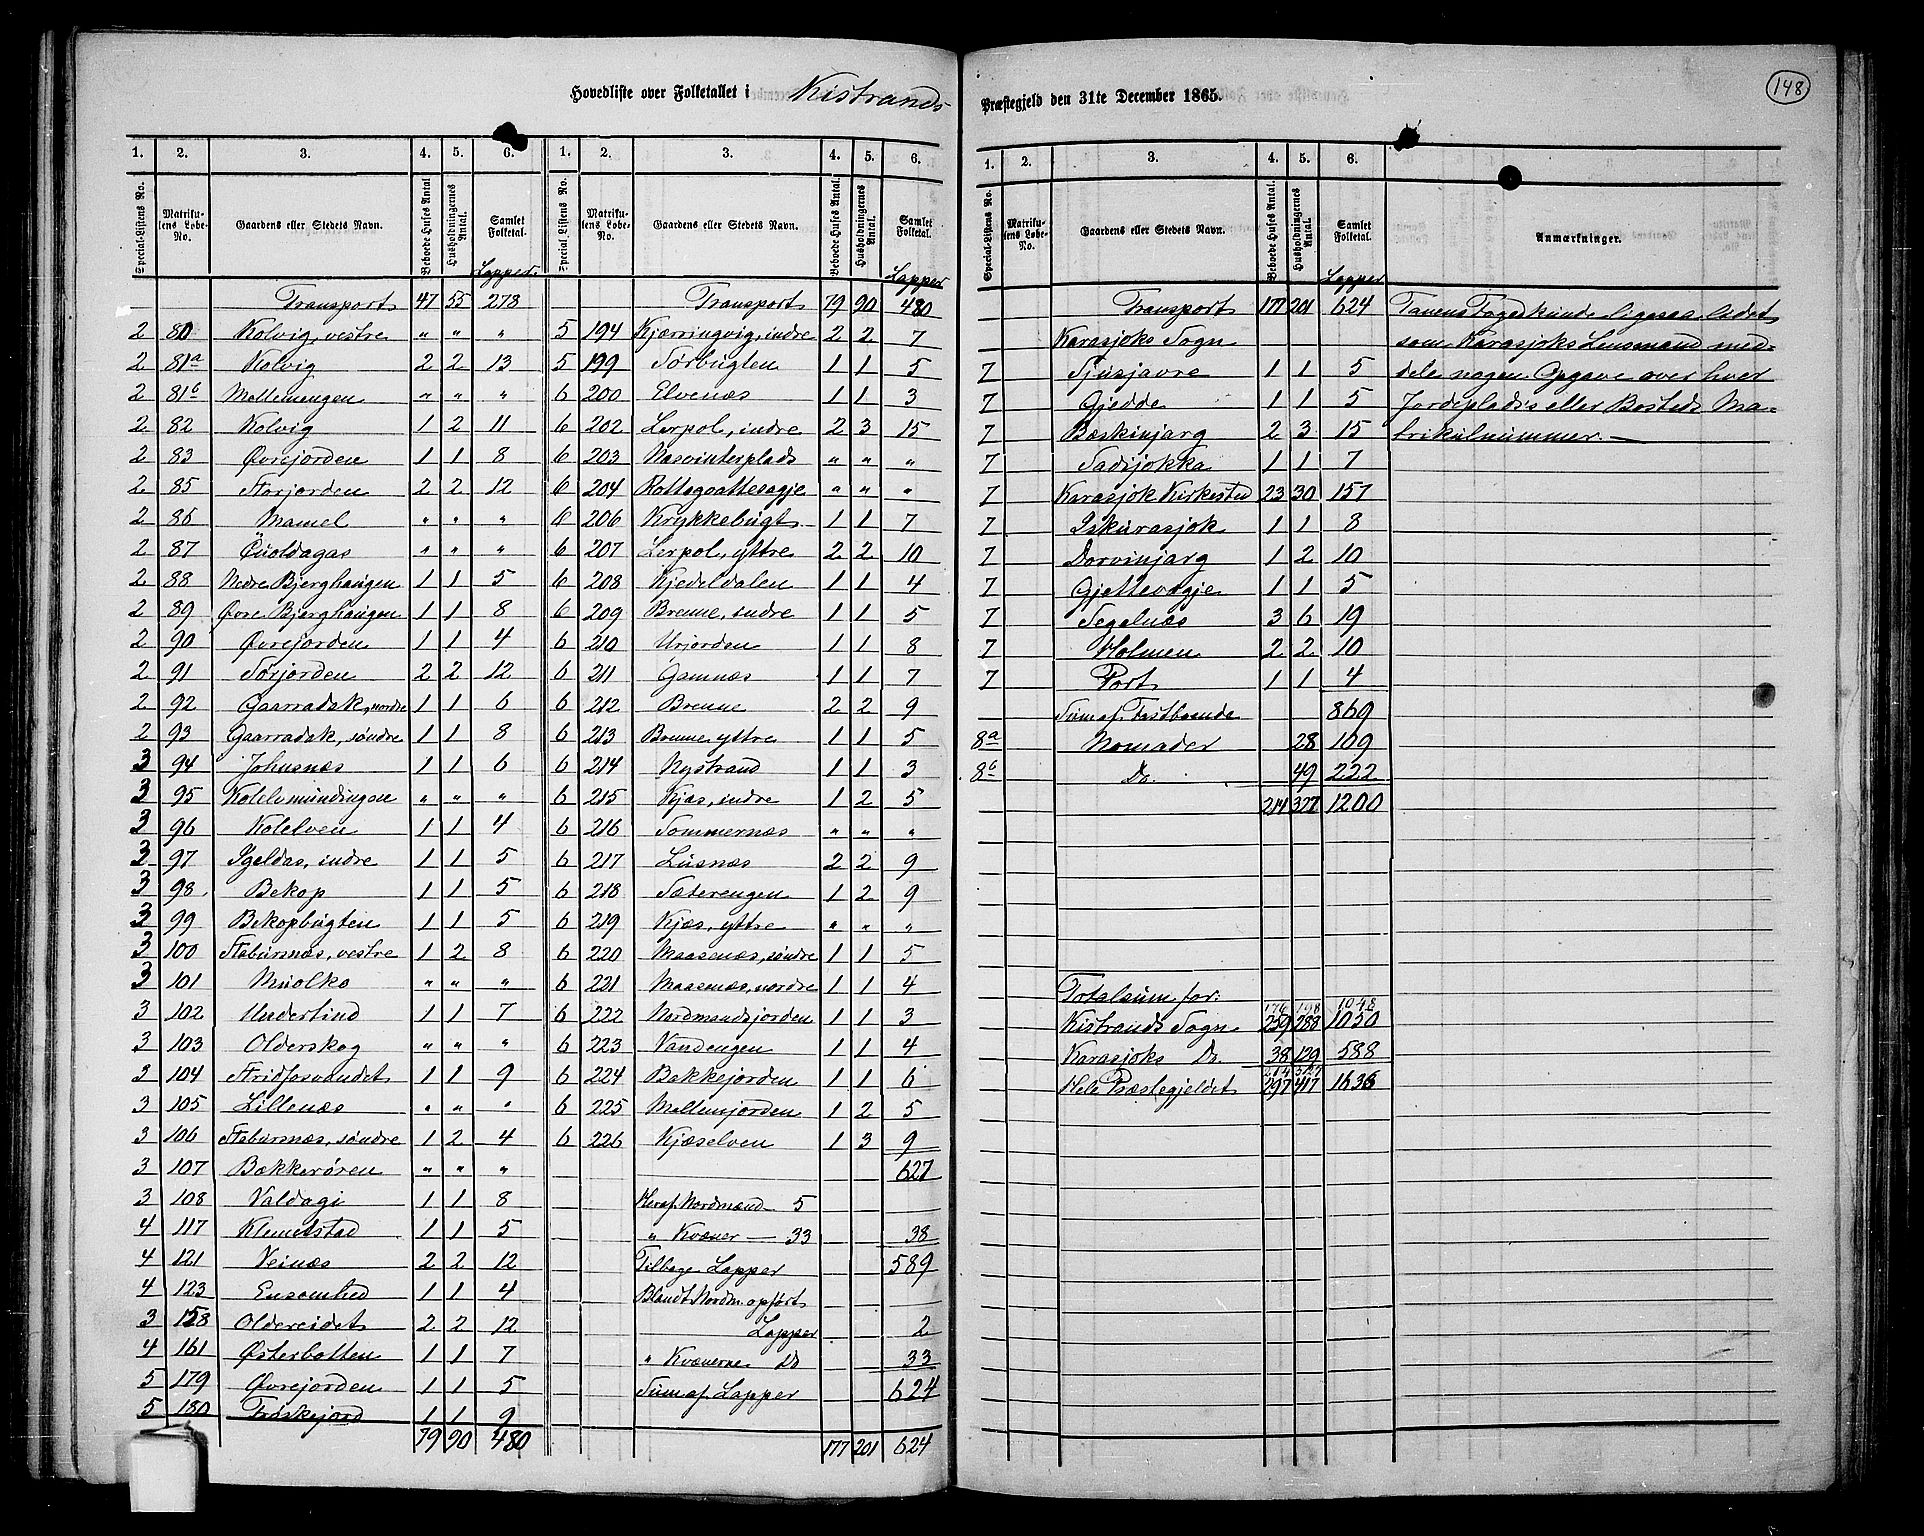 148
Hovedliste over Folketallet i Kistrands Præstegjeld den 31te December 1865.
1. 2. 3. 4. 5. 6. 1. 2. 3. 4. 5. 6.
Special-Listens No. Matrikulens Løbe-No. Gaardens eller Stedets Navn. Beboede Huses Antal Husholdningernes Antal. Samlet Folketal. Special Listens No. Matrikulens Løbe-No. Gaardens eller Stedets Navn. Beboede Huses Antal. Husholdningernes Antal. Samlet Folketal.
Lapper. Lapper
Transport 47 55 273 Transport 79 90 480
2 80 Kolvig, vestre " " " 5 194 Kjærringvig, indre 2 2 7
2 81a Kolvig 2 2 13 5 199 Sørbugten 1 1 5
2 81b Mellemengen " " " 6 200 Elvenæs 1 1 3
2 82 Kolvig 1 2 11 6 202 Lerpol, indre 2 3 15
2 83 Øvrejorden 1 1 8 6 203 Nasvinterplads " " "
2 85 Storjorden 2 2 12 6 204 Rottegoattesagje " " "
2 86 Mamel " " " 6 206 Krykkebugt 1 1 7
2 87 Čuoldagas " " " 6 207 Lerpol, yttre 2 2 10
2 88 Nedre Bjerghaugen 1 1 5 6 208 Kjedeldalen 1 1 4
2 89 Øvre Bjerghaugen 1 1 8 6 209 Brenne, indre 1 1 5
2 90 Øvrejorden 1 1 4 6 210 Urjorden 1 1 8
2 91 Sørjorden 2 2 12 6 211 Gamnæs 1 1 7
2 92 Gaarradak, nordre 1 1 6 6 212 Brenne 2 2 9
2 93 Gaarradak, søndre 1 1 8 6 213 Brenne yttre 1 1 5
3 94 Johnsnæs 1 1 6 6 214 Nystrand 1 1 3
3 95 Kolelvmundingen " " " 6 215 Kjæs, indre 1 2 5
3 96 Kolelven 1 1 4 6 216 Sommernæs " " "
3 97 Igeldas, indre 1 1 5 6 217 Lusnæs 2 2 9
3 98. Bekop 1 1 5 6 218 Sæterengen 1 2 9
3 99 Bekopbugten 1 1 5 6 219 Kjæs, yttre " " "
3 100 Stabursnæs, vestre 1 2 8 6 220 Maasenæs, søndre 1 1 5
3 101 Muolko " " " 6 221 Maasenæs, nordre 1 1 4
3 102 Undertind 1 1 7 6 222 Nordmandsjorden 1 1 3
3 103 Olderskog " " " 6 223 Vandengen 1 1 4
3 104 Stridfosvandet 1 1 9 6 224 Bakkejorden 1 1 6
3 105 Lillenæs " " " 6 225 Mellemjorden 1 2 5
3 106 Stabursnæs, søndre 1 2 4 6 226 Kjæselven 1 3 9
3 107 Bækkerøren " " " 627
3 108 Valdagi 1 1 8 Heraf Nordmænd 5
4 117 Klemetstad 1 1 5 " Kvæner — 33 38
4 121 Veinæs 2 2 12 Tilbage Lapper 589
4 123 Ensomhed 1 1 4 Blandt Nordm. opført
3 158 Oldereidet 2 2 12 Lapper 2
4 161 Østerbotten 1 1 7 " Kvænerne do 33
5 179 Øvrejorden 1 1 5 Sum af Lapper 624
5 180 Troskejord 1 1 9
79 90 480 177 201 624
1. 2. 3. 4. 5. 6.
Special-Listens No. Matrikulens Løbe-No. Gaardens eller Stedets Navn. Beboede Huses Antal. Husholdningernes Antal. Samlet Folketal. Anmærkninger.
Lapper
Transport 177 201 624 Tanens Foged kunde ligesaa lidet
Karasjoks Sogn som Karasjoks Lensmand med-
7 Sjusjavre 1 1 5 dele nogen Opgave over hver
7 Gjedde 1 1 5 Jordeplads eller Bosteds Ma-
7 Bæskinjarg 2 3 15 trikulnummer. —
7 Sadsjokka 1 1 7
7 Karasjok Kirkested 23 30 157
7 Iskurasjok 1 1 8
7 Dorvinjarg 1 2 10
7 Gjettevagje 1 1 5
7 Segelnæs 3 6 19
7 Holmen 2 2 10
7 Port 1 1 4
Sum af Fastboende 869
8a Nomader 28 109
8b Do. 49 222
214 327 1200
Totalsum for:
176 198 1048
Kistrands Sogn 259 288 1050
Karasjoks Do. 38 129 588
214 327
Hele Præstegjeldet 297 417 1636